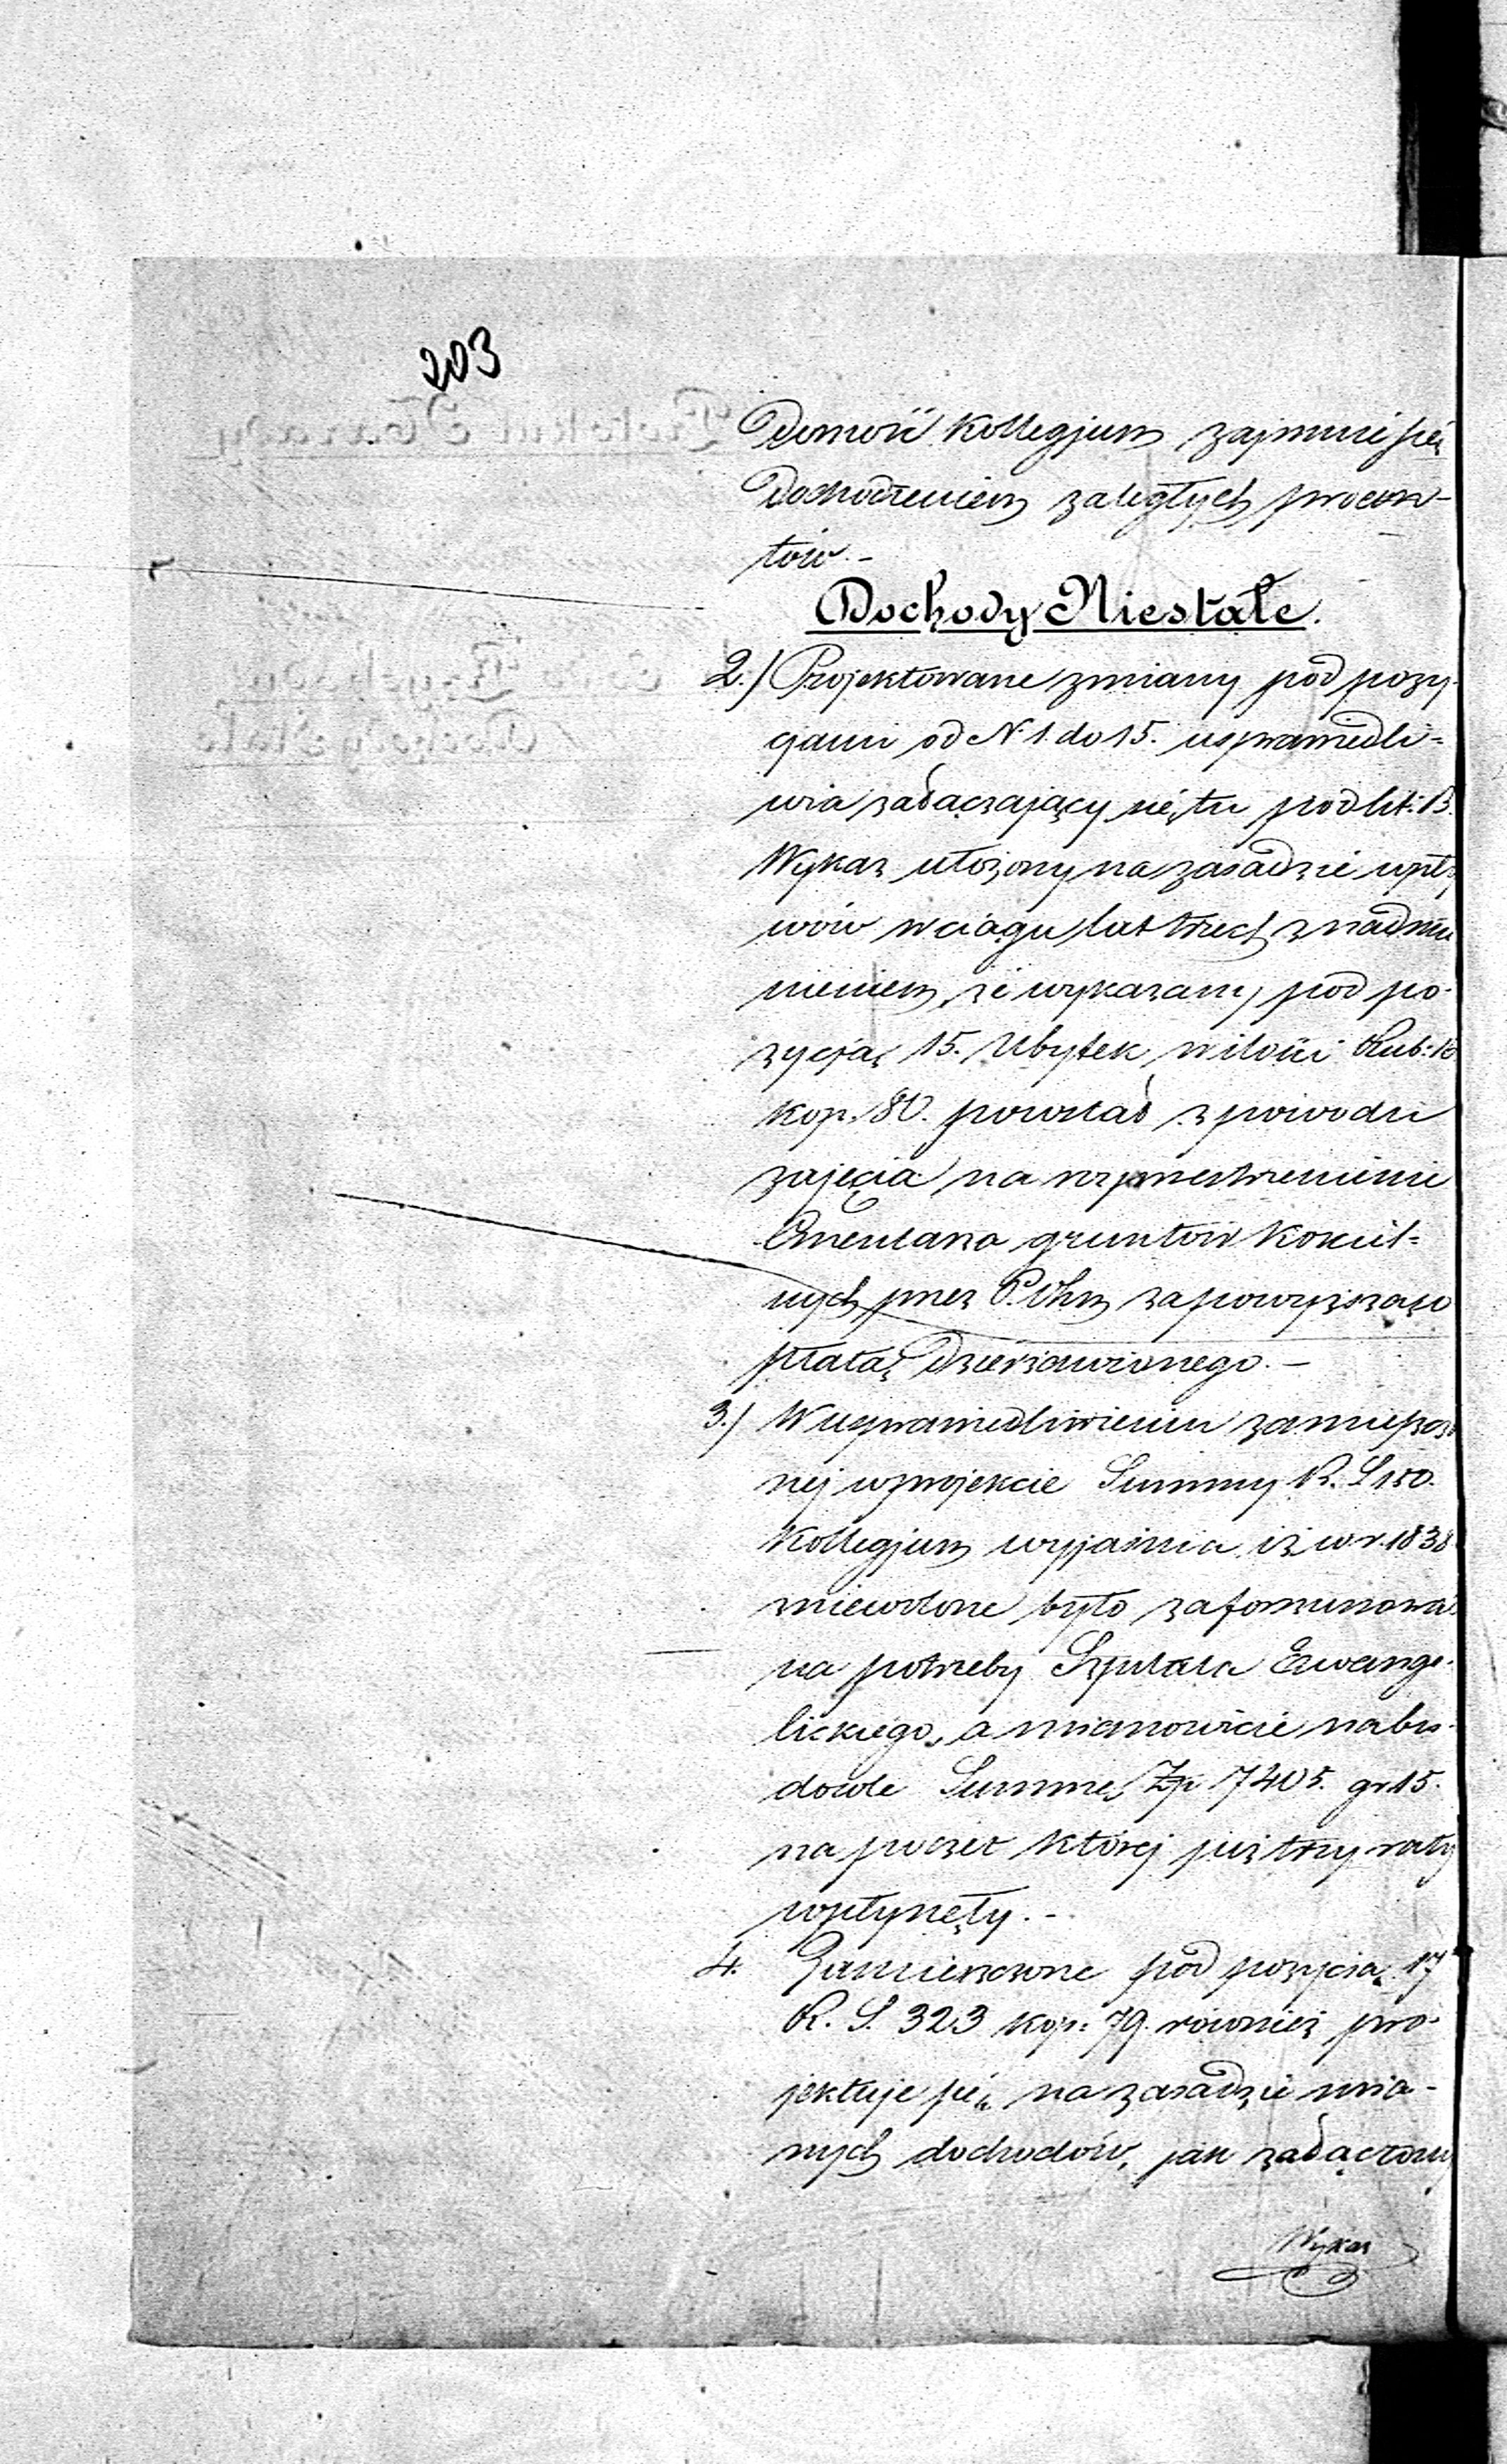 203
Domość Kollegjum zajmuie się
Dochodzeniem zaległych procen-
tów.-
Dochody Niestałe.
2.) Projektowane zmiany pod pozy-
cjami od N 1. do 15. usprawiedli=
wia załączający się tu pod lit: B.
Wykaz ułożony na zasadzie wpły
wów w ciągu lat trzech z nadmie
nieniem, że wykazany pod po-
zycją 15. Ubytek w ilości Rub:
kop. 80. powstał z powodu
zajęcia na rozprzestrzenienie
Cmentarza gruntów Kościel=
nych przez P. Ohm za powyższą o
płatą Dzierżawionego.-
3.) W usprawiedliwieniu zamieszczo
nej w projekcie Summy R. S 150.
Kollegjum wyjaśnia iż w r. 1838
zniewolone było zaforszusować
na potrzeby Szpitala Ewange-
lickiego, a mianowicie na bu-
dowle Summę Zp 7405. gr 15.
na poczet której już trzy raty
wpłynęły.-
4. Zamieszczone pod pozycią 17
R. S. 323 kop: 79. również pro-
jektuje się na zasadzie mia-
nych dochodów, jak załączony
Wykaz